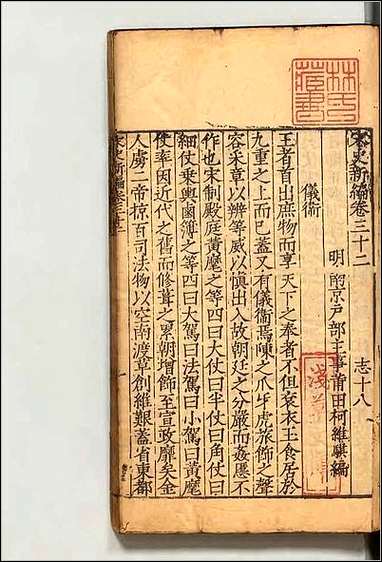 宋史新編卷三十二　志十八
明南京戶部主事莆田柯維騏編
儀衛
王者首出庶物而享天下之奉者不但衮衣玉食居於
九重之上而已蓋又有儀衛焉陳之爪牙虎旅飾之聲
容采章以辨等威以愼出入故朝廷之分嚴而姦慝不
作也宋制殿庭黃麾之等四曰大仗曰半仗曰角仗曰
細仗乘輿鹵簿之等四曰大駕曰法駕曰小駕曰黃麾
仗率因近代之舊而修葺之累朝增飾至宣政靡矣金
人虜二帝掠百司法物以空南渡草創維艱蓋省東都
林氏藏書